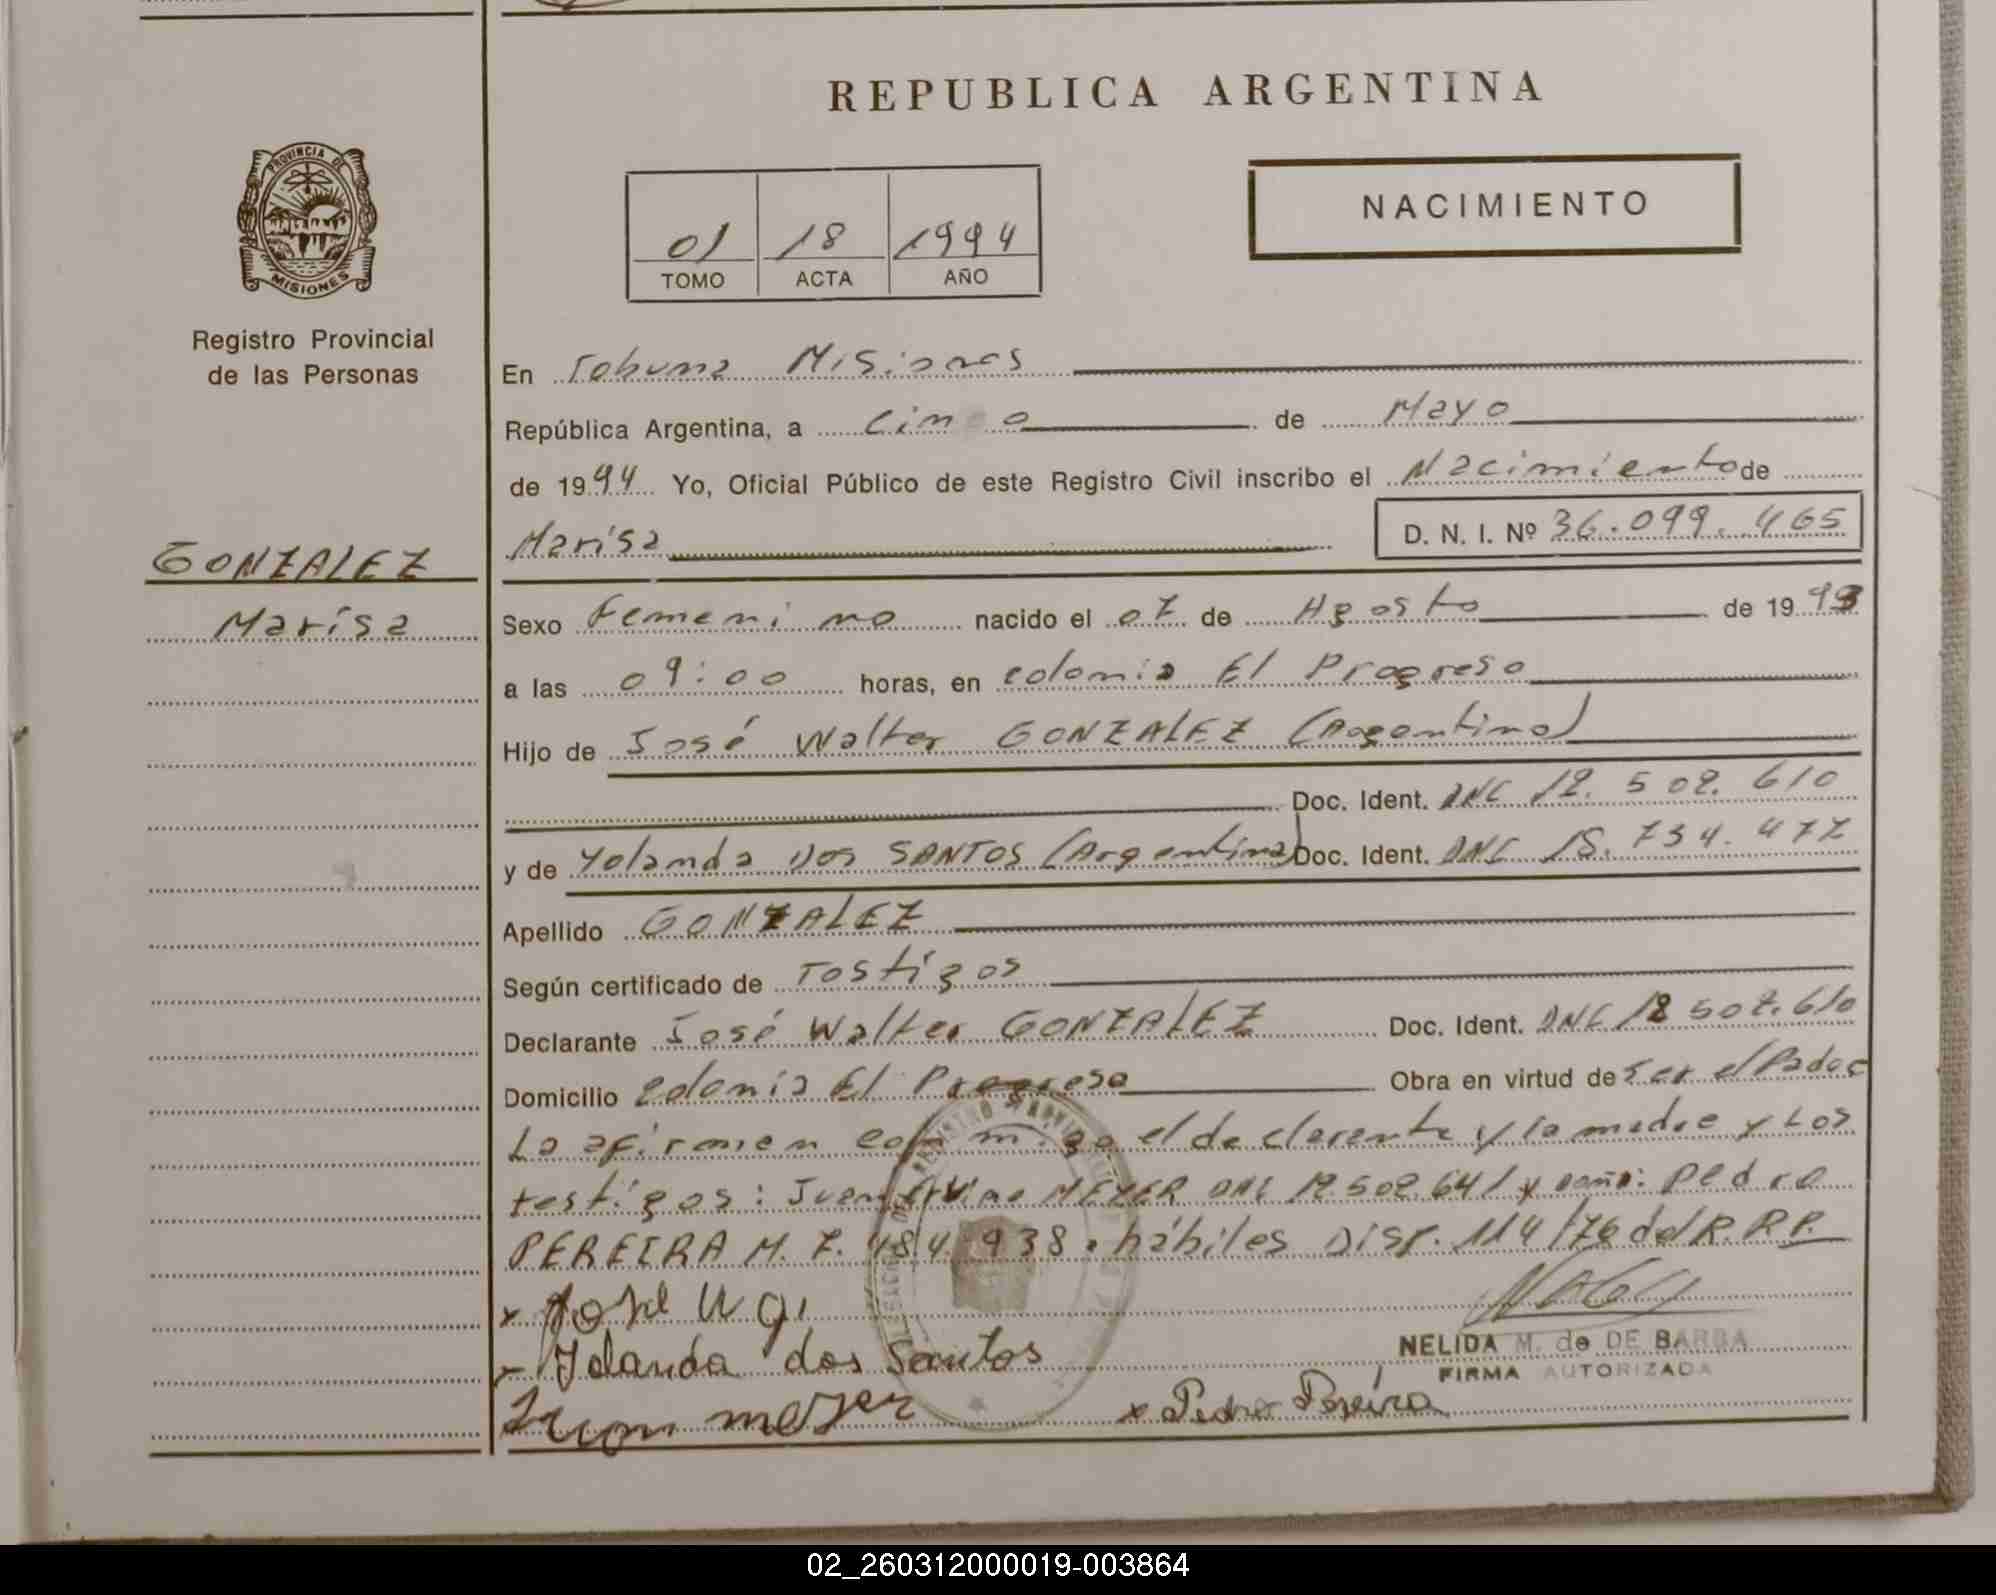 REPUBLICA ARGENTINA
PROVINCIA DE MISIONES
Registro Provincial
de las Personas
01 18 1994
TOMO ACTA AÑO
NACIMIENTO
En Tobuna Misiones
República Argentina, a Cinco de Mayo
de 1994 Yo, Oficial Público de este Registro Civil inscribo el Nacimiento de
Marisa D. N. I. Nº 36.099.465
GONZALEZ
Marisa
Sexo Femenino nacido el 07 de Agosto de 1993
a las 09:00 horas, en colonia El Progreso
Hijo de José Walter GONZALEZ (Argentino)
Doc. Ident. DNI 12.502.610
y de Yolanda DOS SANTOS (Argentina) Doc. Ident. DNI 18.734.477
Apellido GONZALEZ
Según certificado de Testigos
Declarante José Walter GONZALEZ Doc. Ident. DNI 12 502.610
Domicilio colonia El Progreso Obra en virtud de Ser el Padre
La afirman conmigo el declarante y la madre y Los
testigos: Juan MEYER DNI 12.502.641 y Pedro
PEREIRA M. 7.484.938. hábiles Disp. 114/76 del R.R.P.
x José W G.
x Yolanda dos Santos
NELIDA M. de DE BARBA
FIRMA AUTORIZADA
Juan meyer x Pedro Pereira
02_260312000019-003864